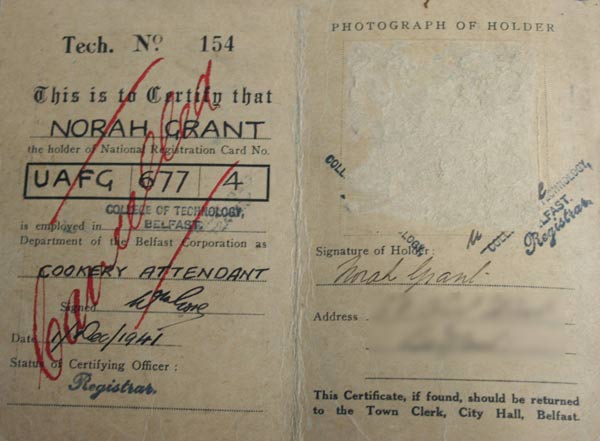 Tech. No 154
This is to Certify that
NORAH GRANT
the holder of National Registration Card No.
UAFG 677 4
COLLEGE OF TECHNOLOGY,
BELFAST.
is employed in
Department of the Belfast Corporation as
COOKERY ATTENDANT
Signed
Date 1/Dec/1941
Status of Certifying Officer :
Registrar.
Cancelled
PHOTOGRAPH OF HOLDER
COLL
OLOGY,
BELFAST.
Registrar.
Signature of Holder :
Norah Grant
Address
This Certificate, if found, should be returned
to the Town Clerk, City Hall, Belfast.